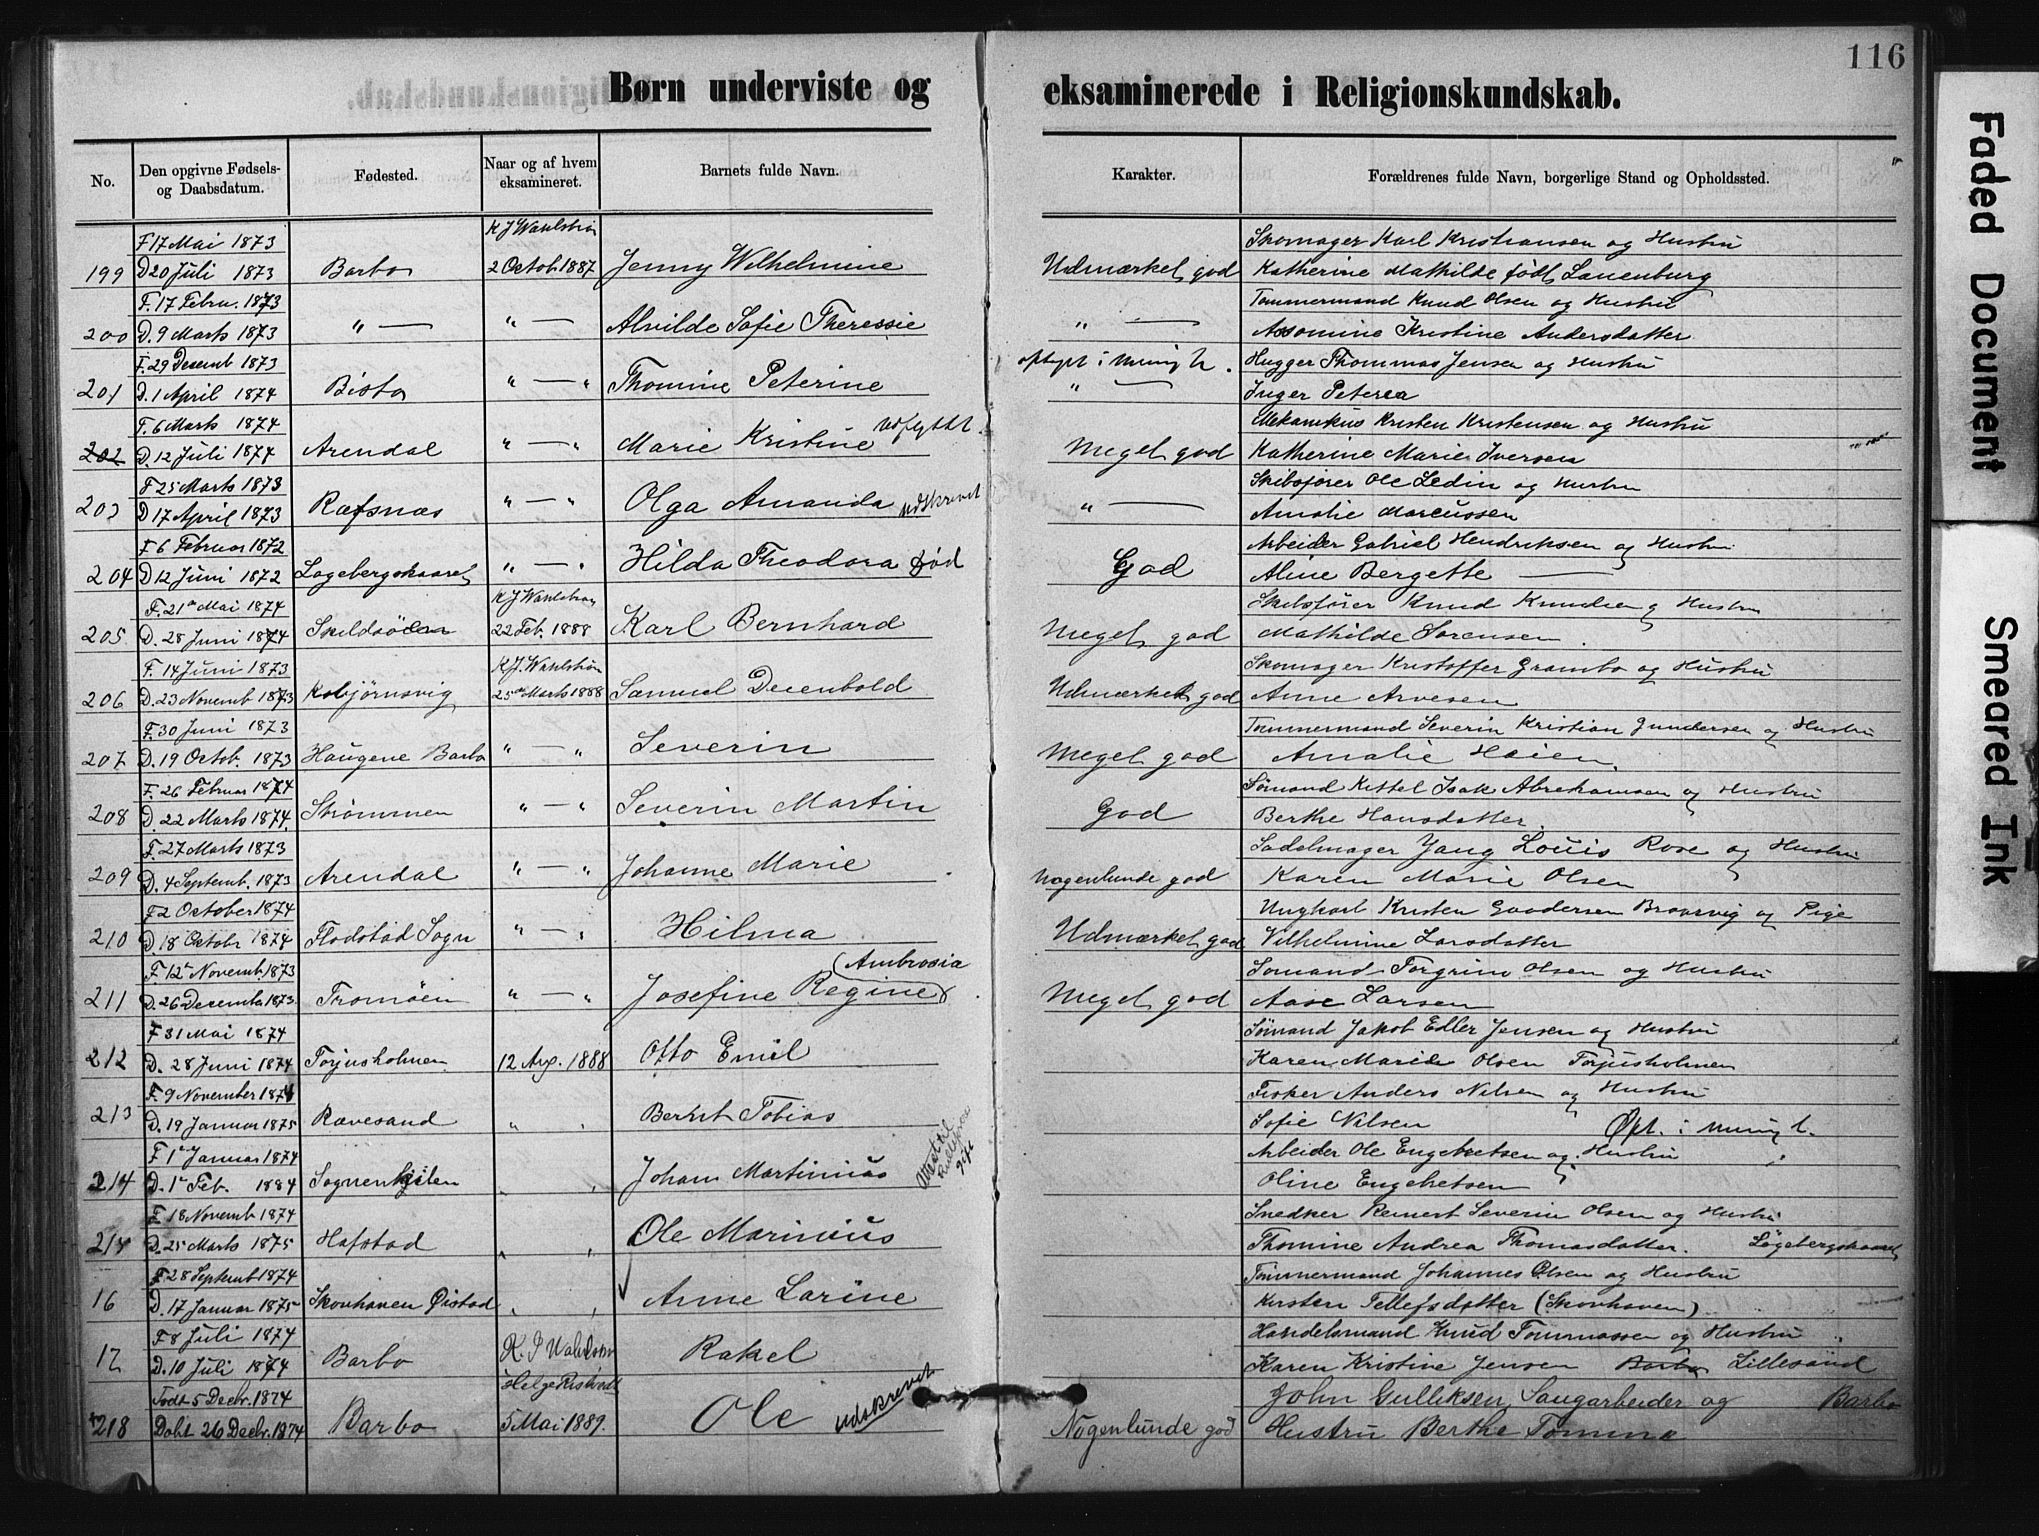 116
Børn underviste og eksaminerede i Religionskundskab.
No. Den opgivne Fødsels- og Daabsdatum. Fødested. Naar og af hvem eksamineret. Barnets fulde Navn. Karakter. Forældrenes fulde Navn, borgerlige Stand og Opholdssted.
F 17 Mai 1873 K J Wahlstrøm Skomager Karl Kristiansen og Hustru
199 D 20 Juli 1873 Barbo 2 Octob. 1887 Jenny Wilhelmine Udmærket god Katherine Mathilde født Lauenburg
F. 17 Febru. 1873 Tømmermand Knud Olsen og Hustru
200 D. 9 Marts 1873 " — " — Alvilde Sofie Theressie " — Assomine Kristine Andersdatter
F. 29 Decemb 1873 Hugger Thommas Jensen og Hustru
201 D. 1 April 1874 Bista " — " Thomine Peterine " — Inger Peterea
F. 6 Marts 1874 udflyttet. Mekanikus Kristen Kristensen og Hustru
202 D. 12 Juli 1874 Arendal " — " Marie Kristine Meget god Katherine Marie Iversen
F 25 Marts 1873 Skibsfører Ole Ledin og Hustru
203 D 17 April 1873 Ræfsnæs " — " Olga Amanda udskrevet " — Amalie Marcussen
F 6 Februar 1872 Arbeider Gabriel Hendriksen og Hustru
204 D 12 Juni 1872 Løgebergskaaret " — " Hilda Theodora død God Aline Bergette —
F. 21 Mai 1874 K J Wahlstrøm Skibsfører Knud Knudsen og Hustru
205 D. 28 Juni 1874 Skildsöen 22 Feb. 1888 Karl Bernhard Meget god Mathilde Sorensen
F. 14 Juni 1873 K J. Wahlstrøm Skomager Kristoffer Grambo og Hustru
206 D. 23 Novemb 1873 Kolbjørnsvig 25 Marts 1888 Samuel Deienbold Udmærket god Anne Arvesen
F. 30 Juni 1873 Tømmermand Severin Kristian Gundersen og Hustru
207 D. 19 Octob. 1873 Haugene Barbo " — " Severin Meget god Amalie Høien
F. 26 Februar 1874 Sømand Kettel Isak Abrehamsen og Hustru
208 D. 22 Marts 1874. Strømmen " — " Severin Martin God Berthe Hansdatter
F. 27 Marts 1873 Sadelmager Yang Louis Rose og Hustru
209 D. 4 Septemb. 1873 Arendal " — " Johanne Marie Nogenlunde god Karen Marie Olsen
F 2 October 1874 Ungkarl Kristen Gundersen Braarvig og Pige
210 D. 18 Octobr 1874 Flodstad Sogn " — " Hilma Udmærket god Vilhelmine Larsdatter
F. 12 Novemb. 1873 (Ambrosia Sømand Torgrim Olsen og Hustru
211 D. 26 December 1873. Tromøen " — " Josefine Regine Meget god Aase Larsen
F 31 Mai 1874 Sømand Jakob Edler Jensen og Hustru
212 D. 28 Juni 1874 Torjusholmen 12 Aug. 1888 Otto Emil Karen Marie Olsen Torjusholmen
F. 9 November 1874 Fisker Anders Nilsen og Hustru
213 D. 19 Januar 1875 Rævesand " " Bernt Tobias Sofie Nilsen Opt. i
F 1 Januar 1874 Arbeider Ole Engebretsen og Hustru
214 D. 1 Feb. 1884 Sognenkilen " " Johan Martinius Attest til Oline Engebretsen
F 18 Novemb 1874 Snedker Reinert Severin Olsen og Hustru
214 D. 25 Marts 1875 Hafstad " " Ole Marinius Thomine Andrea Thomasdatter. Løgebergskaaret
F 28 Septemb 1874 Tømmermand Johannes Olsen og Hustru
16 D. 17 Januar 1875 Skovhaven Øistad " " Anne Larine Kirsten Tellefsdatter (Skovhaven)
F 8 Juli 1874 Handelsmand Knud Tommassen og Hustru
17 D. 10 Juli 1874 Barbo K. J Wahlstrøm Rakel Karen Kristine Jensen Barbo Lillesand
Født 5 Decbr. 1874 Helge Ristvedt John Gulliksen, Saugarbeider og Barbo
218 Døbt 26 Decbr. 1874 Barbo 5 Mai 1889. Ole udskrevet Nogenlunde god Hustru Berthe Tomina
Faded Document
Smeared Ink